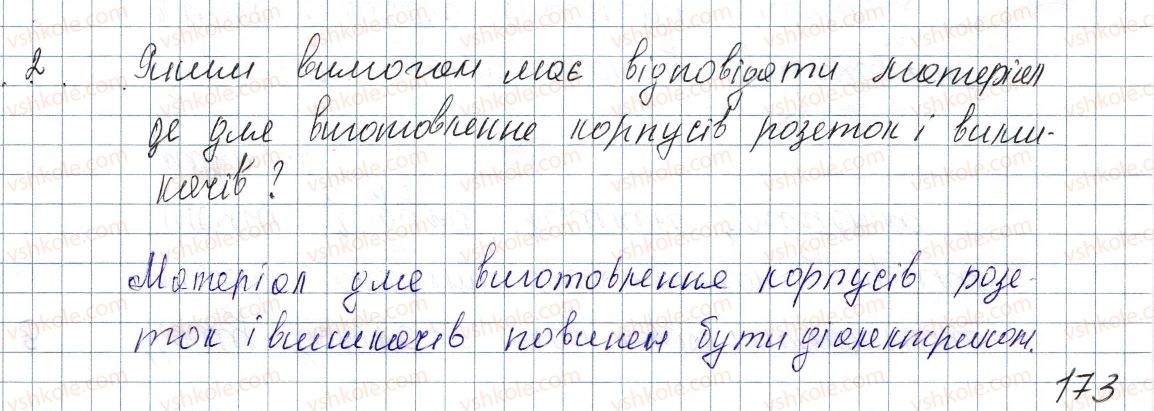 2. Яким вимогам має відповідати матеріал
де для виготовлення корпусів розеток і вими-
качів?
Матеріал для виготовлення корпусів розе-
ток і вимикачів повинен бути діелектриком.
173